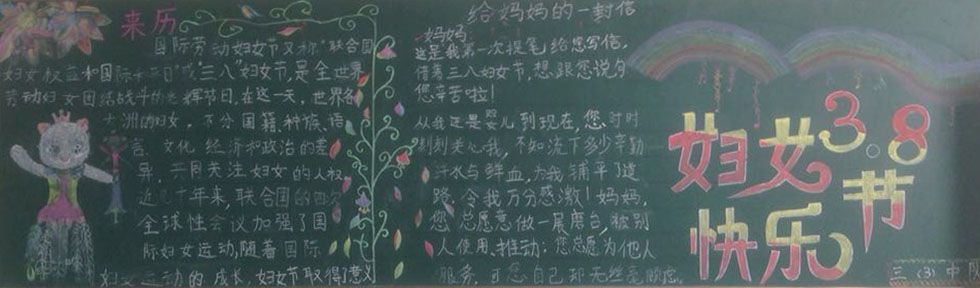 来历
国际劳动妇女节又称"联合国
妇女权益和国际和平日"或"三八"妇女节,是全世界
劳动妇女团结战斗的光辉节日,在这一天,世界各
大洲的妇女,不分国籍,种族、语
言、文化、经济和政治的差
异,共同关注妇女的人权,
近几十年来,联合国的四次
全球性会议加强了国
际妇女运动,随着国际
妇女运动的成长,妇女节取得了意义
给妈妈的一封信
妈妈:
这是我第一次提笔给您写信,
借着三八妇女节,想跟您说句
您辛苦啦!
从我还是婴儿到现在,您时时
刻刻关心我,不知流下多少辛勤
汗水与鲜血,为我铺平了道
路.令我万分感激!妈妈,
您总愿意做一展磨台,被别
人使用,推动;您总愿为他人
服务,可您自己却无丝毫顾虑.
3.8
妇女节
快乐
三(3)中